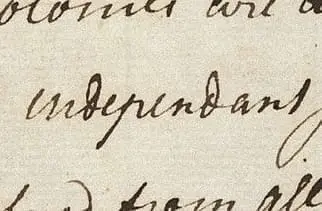 olonies are
independant
from all